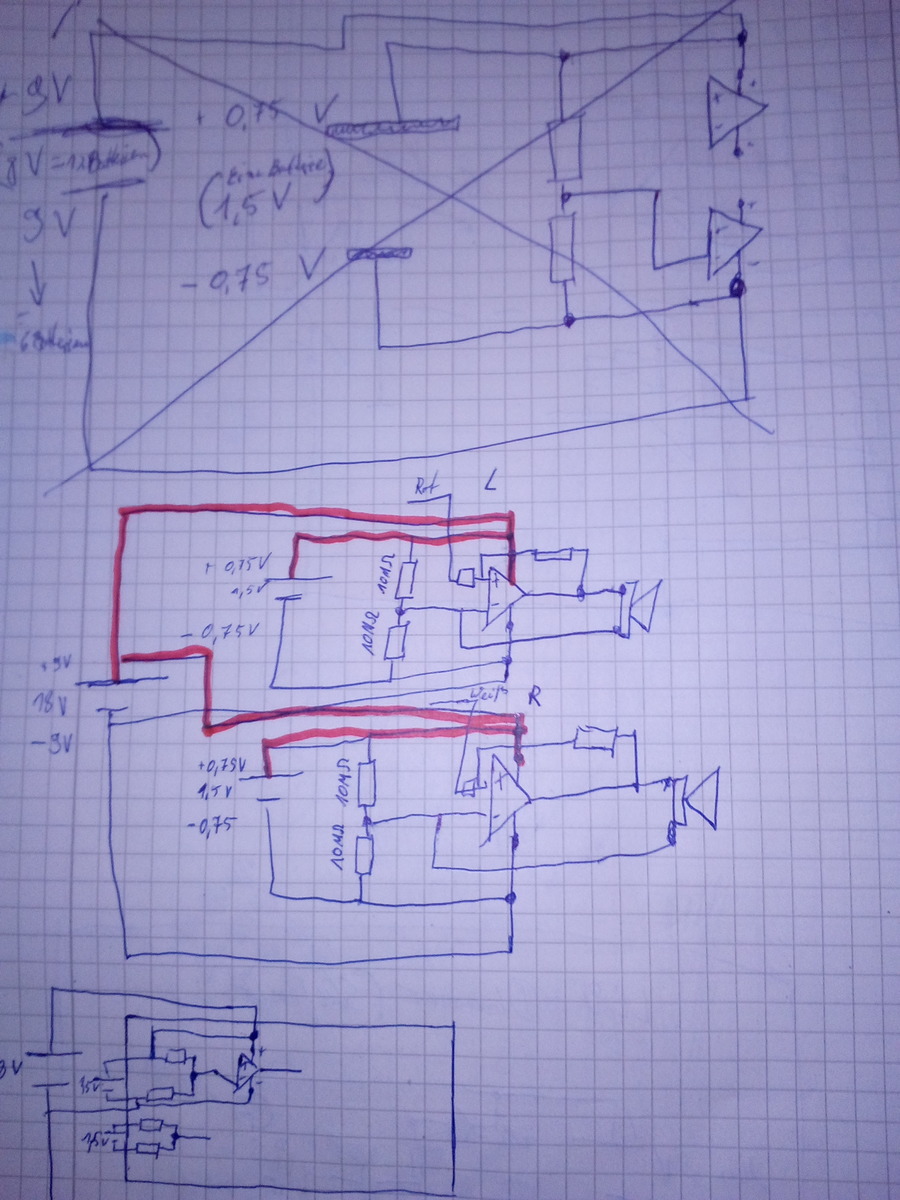 + 9V
9V
+ 0,75 V
(1,5 V)
- 0,75 V
Rot
L
+ 0,75V
1,5V
- 0,75V
10MΩ
10MΩ
+9V
18V
-9V
Weiß
R
+0,75V
1,5V
-0,75
10MΩ
10MΩ
1,5V
1,5V